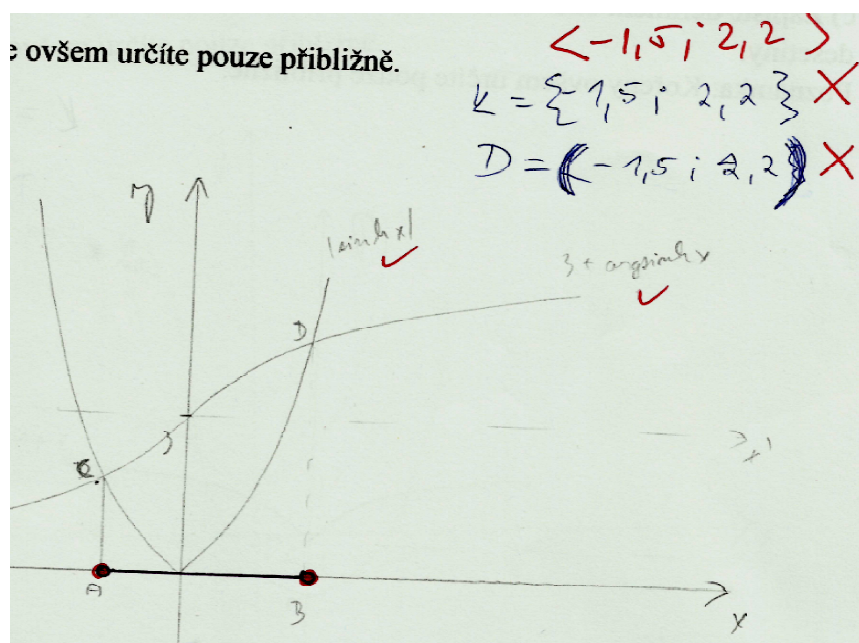 < -1,5 ; 2,2 >
e ovšem určíte pouze přibližně.
K = {-1,5 ; 2,2} X
D = (-1,5 ; 2,2) X
y
|sinh x| ✓
3 + argsinh x ✓
D
3
x'
C
A
B
x